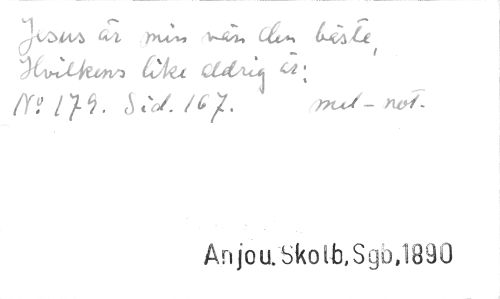 Jesus är min vän den bäste,
Hvilkens like aldrig är:
No 179. Sid. 167. mel-not.
Anjou. Skolb, Sgb, 1890